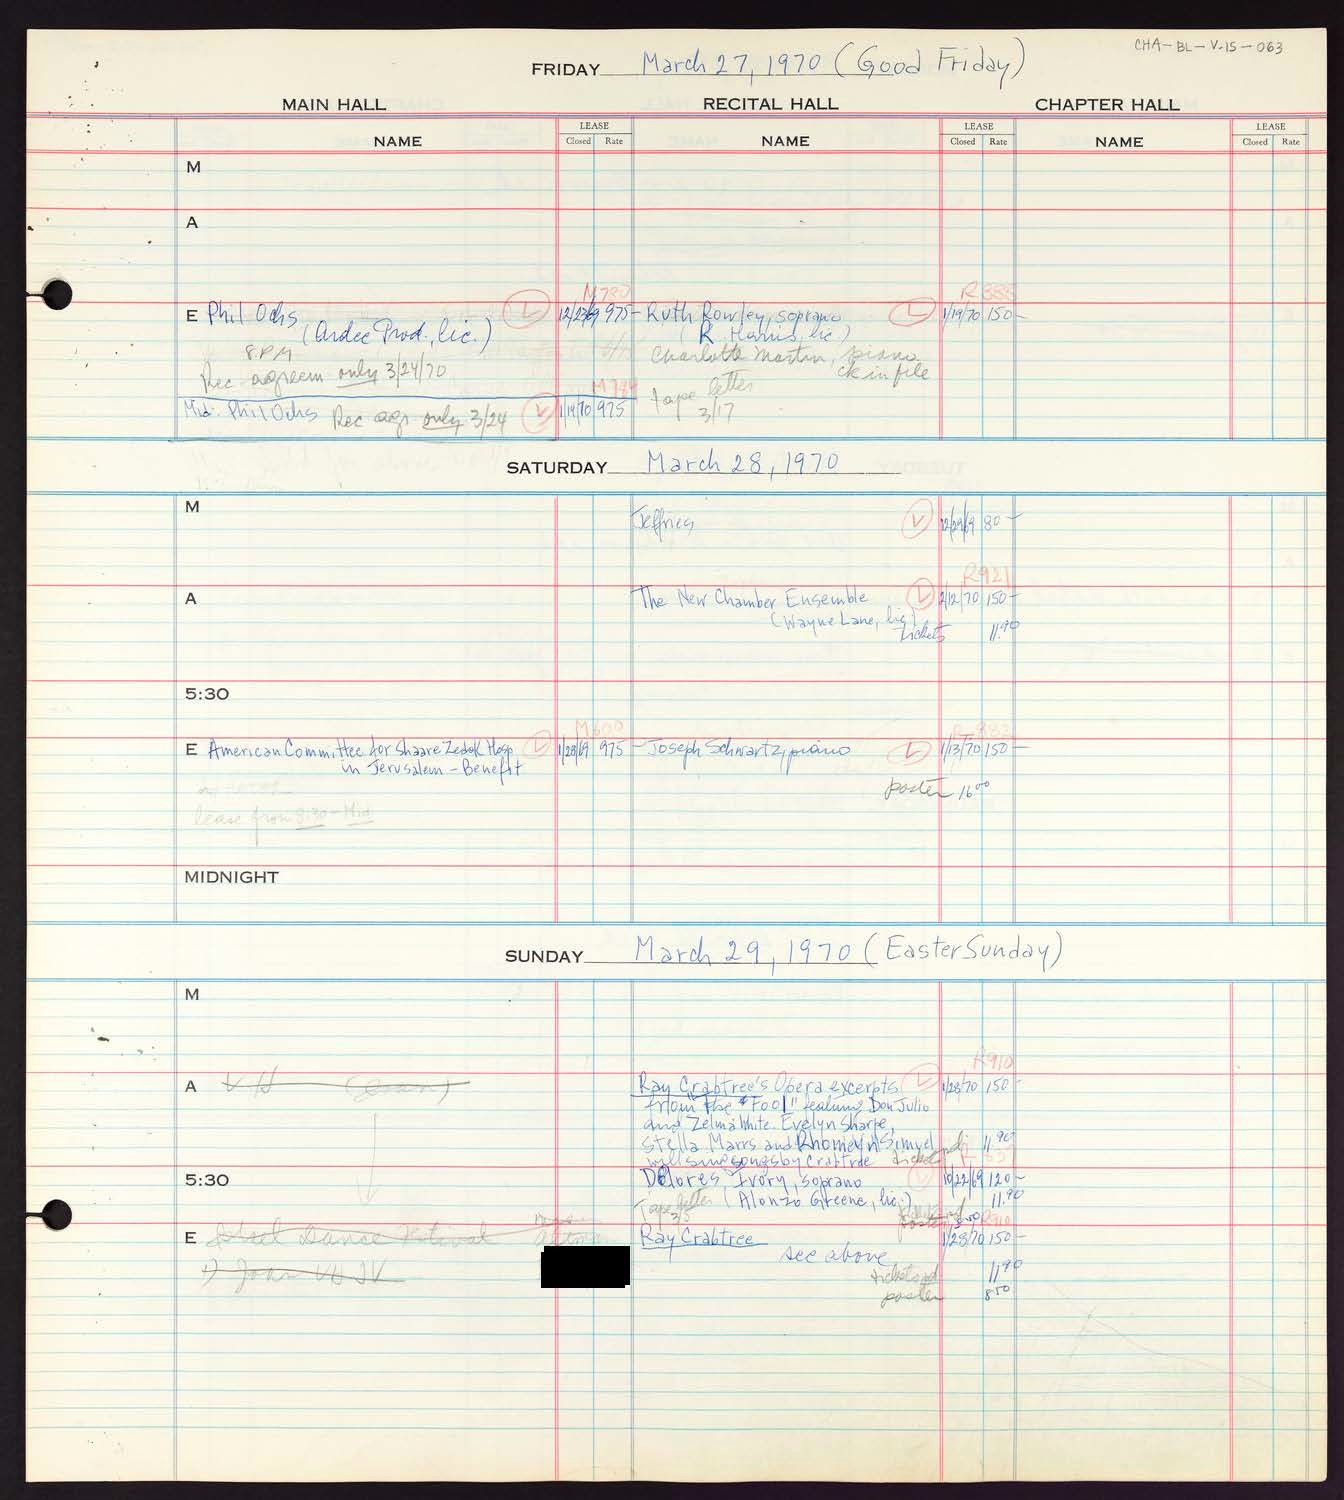 CHA-BL-V-15-063
FRIDAY March 27, 1970 (Good Friday)
MAIN HALL RECITAL HALL CHAPTER HALL
NAME LEASE Closed Rate NAME LEASE Closed Rate NAME LEASE Closed Rate
M
A
M780 R 888
E Phil Ochs L 12/23/69 975- Ruth Rowley, soprano L 1/19/70 150-
(Ardee Prod., lic.) (R. Harris, lic.)
8 PM Charlotte Martin, piano
Rec agreem only 3/24/70 ck in file
M784 Tape letter
Mid. Phil Ochs Rec agr. only 3/24 L 1/19/70 975 3/17
SATURDAY March 28, 1970
M Jeffries 12/29/69 80-
R921
A The New Chamber Ensemble L 2/12/70 150-
(Wayne Lane, lic)
tickets 11.90
5:30
M600
E American Committee for Shaare Zedek Hosp. L 1/28/69 975- Joseph Schwartz, piano L 1/13/70 150-
in Jerusalem - Benefit
poster 16.00
lease from 8:30 - Mid.
MIDNIGHT
SUNDAY March 29, 1970 (Easter Sunday)
M
R910
A Ray Crabtree's Opera excerpts L 1/28/70 150-
from the "Fool" featuring Don Julio
and Zelma White. Evelyn Sharpe,
Stella Marrs and Rhomeyn Simyel
will sing songs by Crabtree tickets 11.90
5:30 Delores Ivory, soprano 10/22/69 120-
Tape letter (Alonzo Greene, lic.) 11.90
3/5 poster R910
E Dance Festival Ray Crabtree 1/28/70 150-
see above
tickets 11.90
poster 8.50